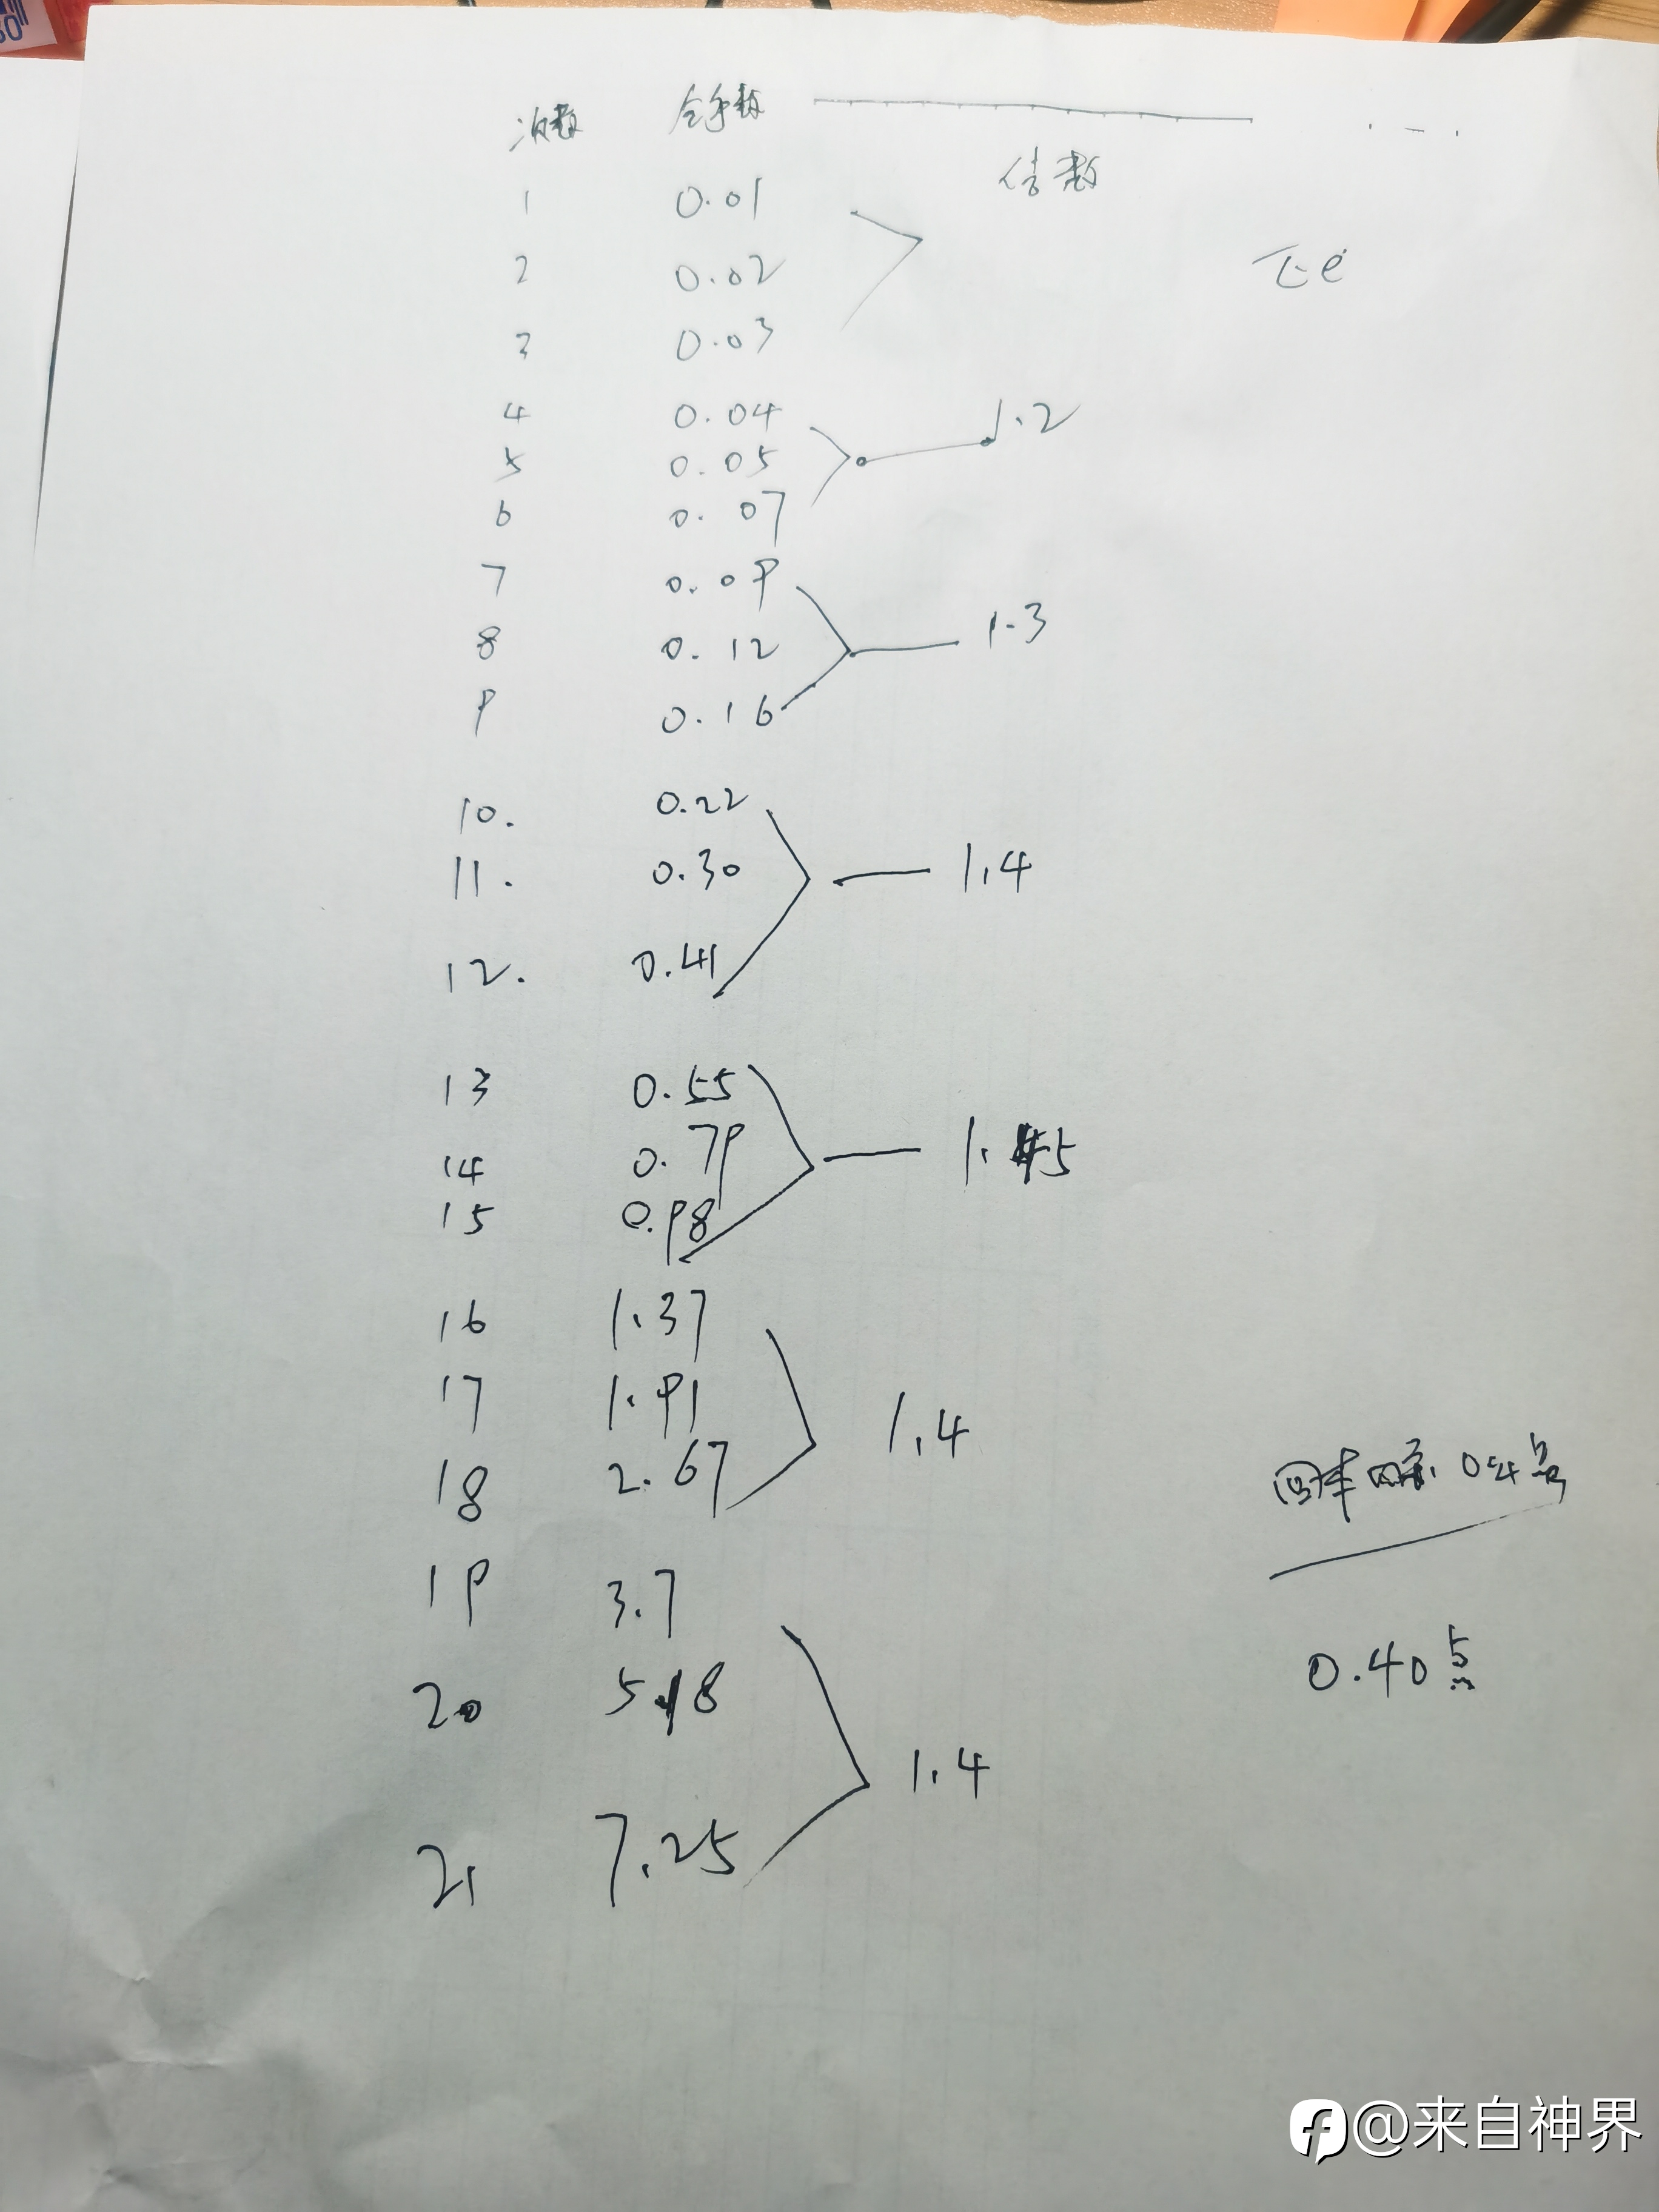 次数 仓手数
倍数
1 0.01
2 0.02
3 0.03
4 0.04
1.2
5 0.05
6 0.07
7 0.09
8 0.12
1.3
9 0.16
10. 0.22
11. 0.30
1.4
12. 0.41
13 0.55
14 0.79
1.45
15 0.98
16 1.37
17 1.91
1.4
18 2.67
19 3.7
20 5.18
1.4
21 7.25
回本
0.40点
@来自神界